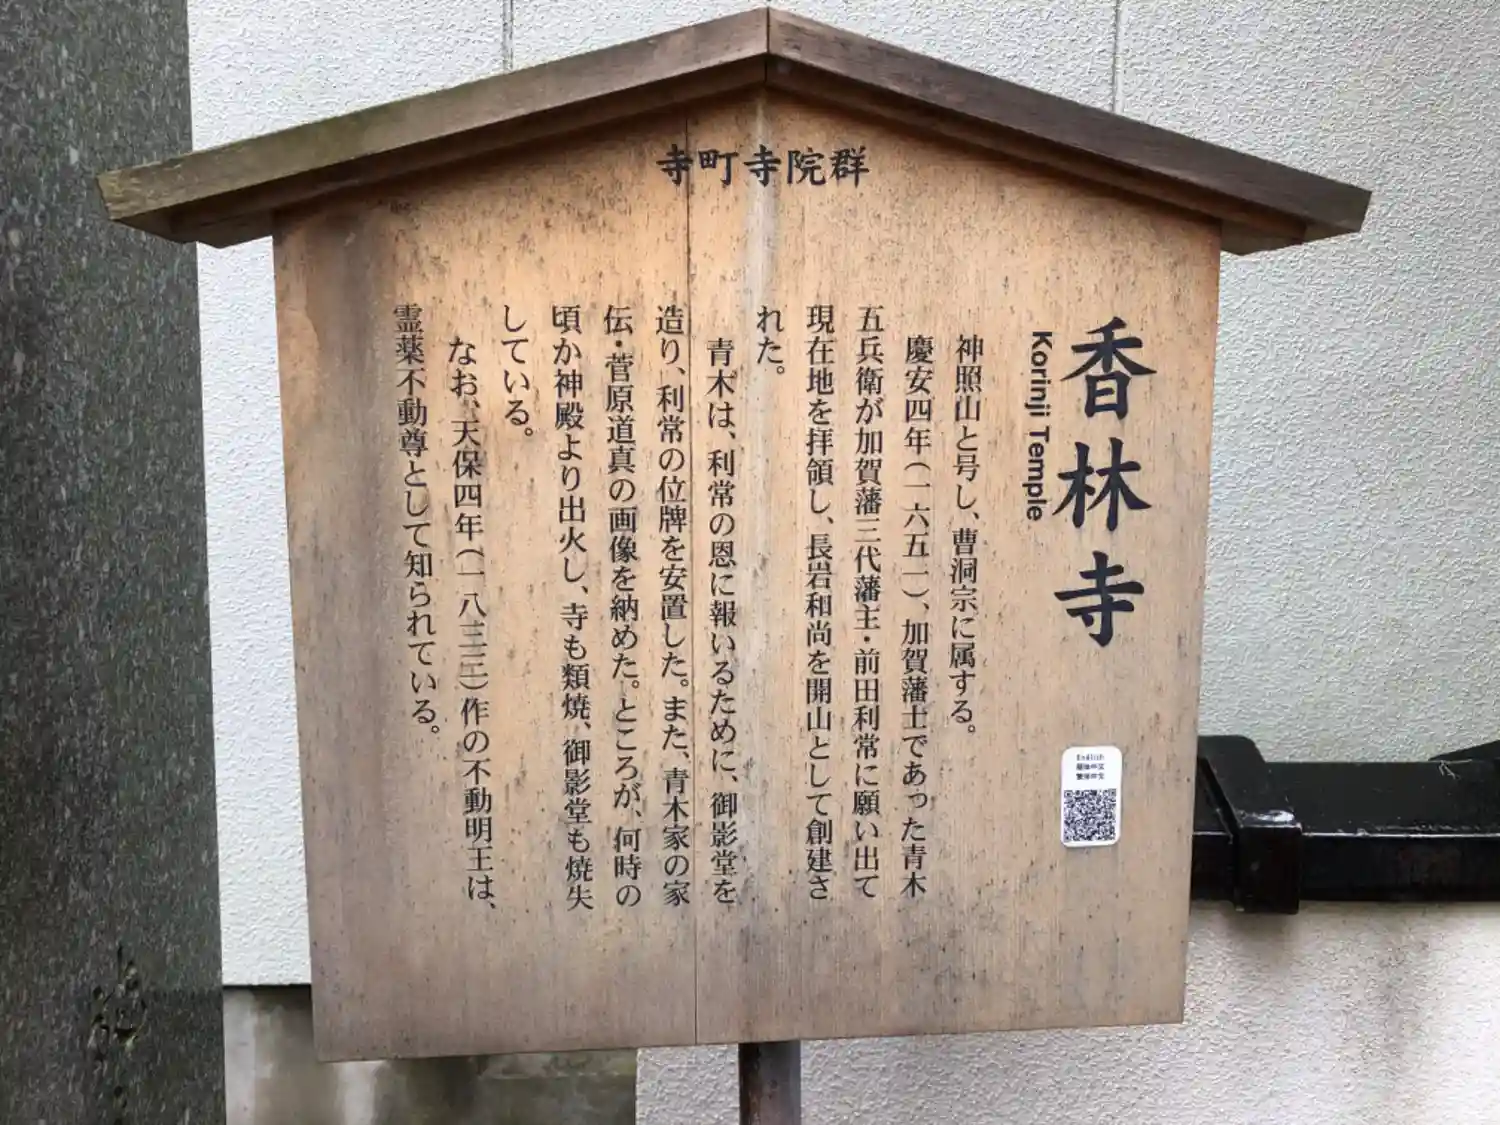 寺町寺院群
香林寺
Korinji Temple
神照山と号し、曹洞宗に属する。
慶安四年(一六五一)、加賀藩士であった青木
五兵衛が加賀藩三代藩主・前田利常に願い出て
現在地を拝領し、長岩和尚を開山として創建さ
れた。
青木は、利常の恩に報いるために、御影堂を
造り、利常の位牌を安置した。また、青木家の家
伝・菅原道真の画像を納めた。ところが、何時の
頃か神殿より出火し、寺も類焼、御影堂も焼失
している。
なお、天保四年(一八三三)作の不動明王は、
霊薬不動尊として知られている。
English
简体中文
繁体中文